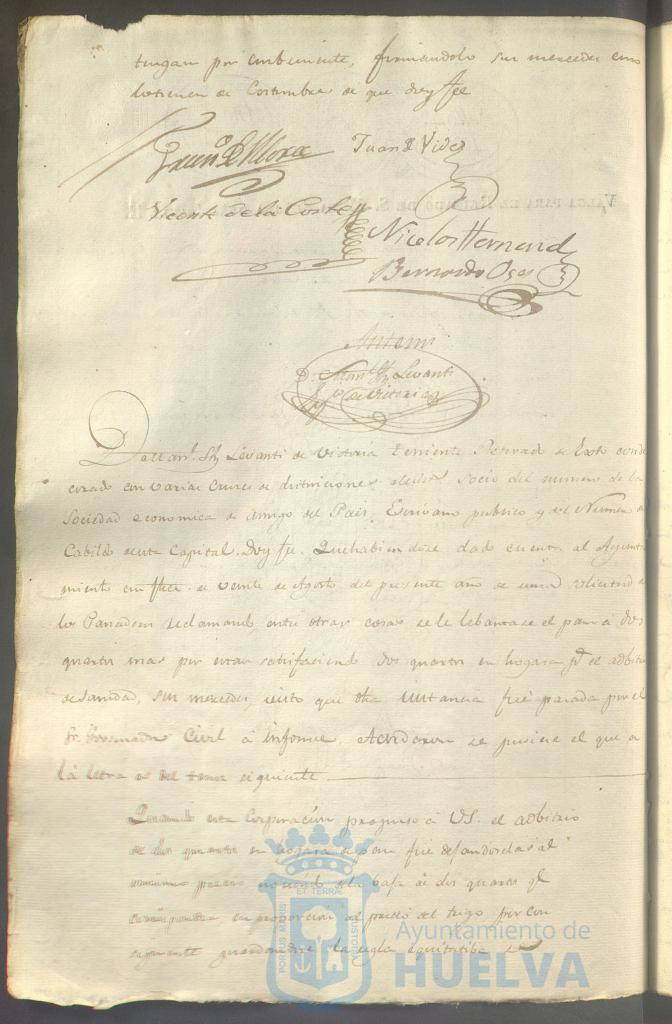 tengan por combeniente, firmandolo sus mercedes como
lo tienen de Costumbre de que doy fee
Juan de Vides
Vicente de la Corte
Nicolas Hernand
Bernardo Oses
Antemi
Levanti
de Victoria
Levanti de Victoria Teniente Retirado de Exto conde
corado con varias Cruces de distinciones socio del numero de la
Sociedad economica de Amigos del Pais, Escribano publico y del Numero
Cabildo de esta Capital. Doy fe. Que habiendose dado cuenta al Ayunta
miento en de veinte de Agosto del presente año de una solicitud de
los Panaderos reclamando entre otras cosas se le lebantase el pan a dos
quartos mas por estar satisfaciendo dos quartos en hogaza pa el adbitrio
de Sanidad, sus mercedes, visto que dha instancia fue pasada por el
Sr. Governador Civil a informe, Acordaron se pusiese el que a
la letra es del tenor siguiente
Quando esta Corporacion propuso á VS. el adbitrio
de dos quartos en hogaza de pan fue dejandoselas al
la baja de dos quartos qe
en proporcion al precio del trigo por con
siguiente guardandose la regla equitatiba de
VALGA PARA EL REINADO DE S.
PORTUS MARIS ET TERRAE CUSTODIA
Ayuntamiento de
HUELVA